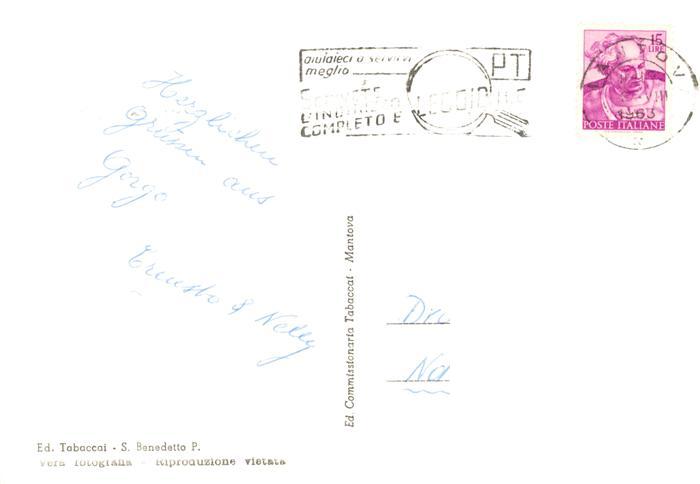 aiutateci a servirvi
meglio
PT
SCRIVETE
L'INDIRIZZO
COMPLETO E LEGGIBILE
15
LIRE
1963
POSTE ITALIANE
Herzlichen
Grüssen aus
Gorgo
Ernesto & Nelly
Ed. Commissionaria Tabaccai - Mantova
Ed. Tabaccai - S. Benedetto P.
Vera fotografia - Riproduzione vietata